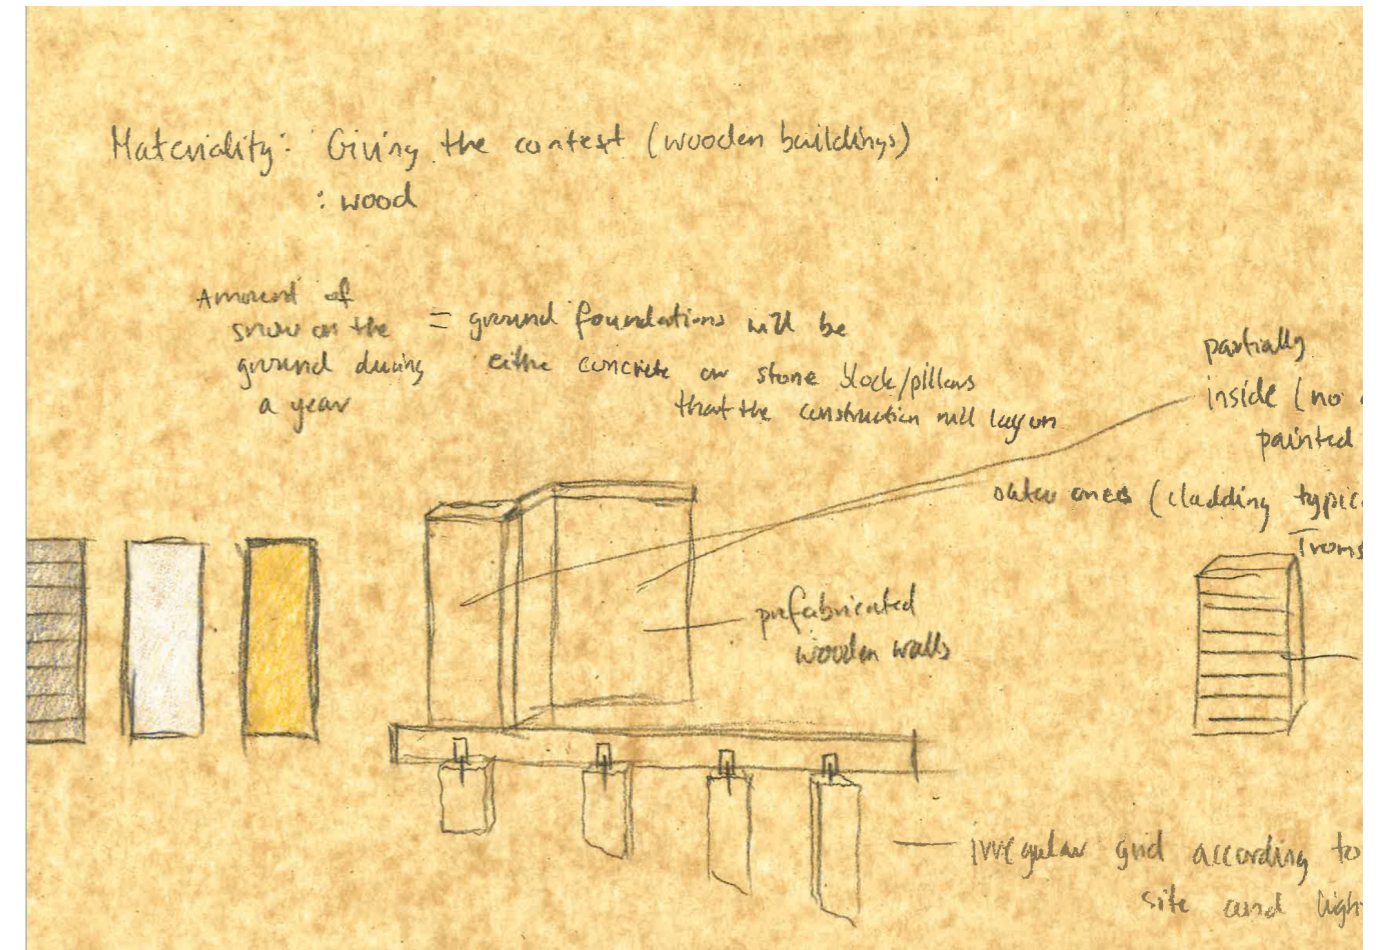 Materiality: Giving the contest (wooden buildings)
: wood
Amount of
snow on the
ground during
a year
= ground foundations will be
either concrete or stone block/pillars
that the construction will lay on
partially
inside (no
painted
outer ones (cladding typic
Troms
prefabricated
wooden walls
irregular grid according to
site and ligh